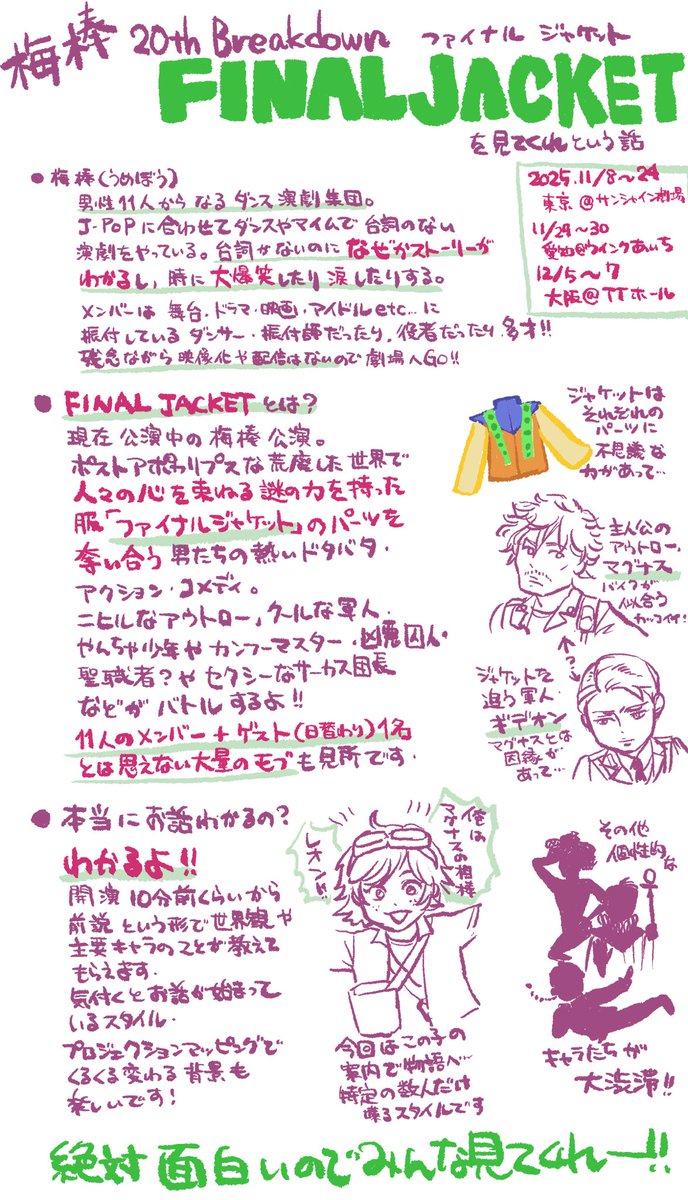 梅棒 20th Breakdown ファイナル ジャケット
FINAL JACKET
を見てくれという話
2025.11/8〜24
東京@サンシャイン劇場
11/29〜30
愛知@ウインクあいち
12/5〜7
大阪@TTホール
● 梅棒(うめぼう)
男性11人からなるダンス演劇集団。
J-POPに合わせてダンスやマイムで台詞のない
演劇をやっている。台詞がないのになぜかストーリーが
わかるし、時に大爆笑したり涙したりする。
メンバーは舞台・ドラマ・映画・アイドルetc…に
振付しているダンサー・振付師だったり、役者だったり多才!!
残念ながら映像化や配信はないので劇場へGO!!
● FINAL JACKETとは?
現在公演中の梅棒公演。
ポストアポカリプスな荒廃した世界で
人々の心を束ねる謎の力を持った
服「ファイナルジャケット」のパーツを
奪い合う男たちの熱いドタバタ・
アクション・コメディ。
ニヒルなアウトロー、クールな軍人、
やんちゃ少年やカンフーマスター、凶悪囚人、
聖職者?やセクシーなサーカス団長
などがバトルするよ!!
11人のメンバー+ゲスト(日替わり)1名
とは思えない大量のモブも見所です。
ジャケットは
それぞれの
パーツに
不思議な
力があって…
主人公の
アウトロー、
マグナス
バイクが
似合う
カッコイイ!
?
ジャケットを
追う軍人・
ギデオン
マグナスとは
因縁が
あって…
● 本当にお話わかるの?
わかるよ!!
開演10分前くらいから
前説という形で世界観や
主要キャラのことが教えて
もらえます。
気付くとお話が始まって
いるスタイル。
プロジェクションマッピングで
くるくる変わる背景も
楽しいです!
俺は
マグナスの相棒
レオン!!
今回はこの子の
案内で物語へ…
特定の数人だけ
喋るスタイルです
その他
個性的な
キャラたちが
大渋滞!!
絶対面白いのでみんな見てくれー!!